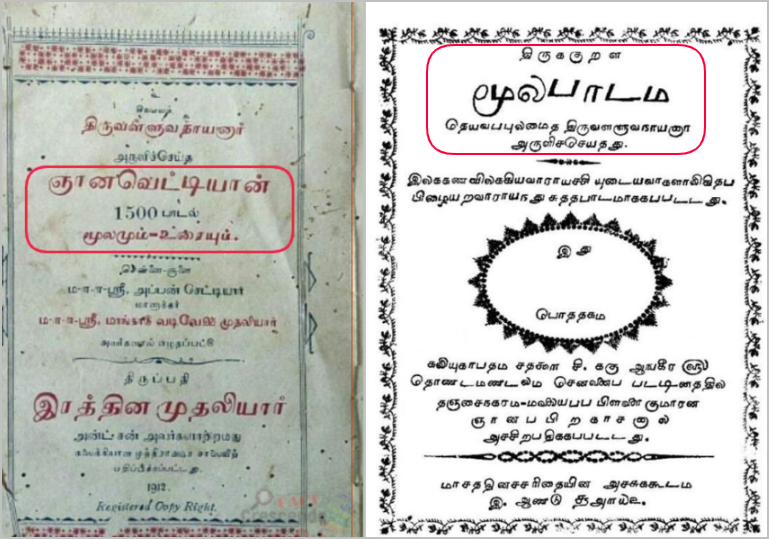 திருவள்ளுவநாயனார்
அருளிச்செய்த
ஞானவெட்டியான்
1500 பாடல்
மூலமும்-உரையும்.
சென்னை-சூளை
ம-ா-ா-ஸ்ரீ, அப்பன் செட்டியார்
மாணாக்கர்
ம-ா-ா-ஸ்ரீ, மாங்காடு வடிவேலு முதலியார்
அவர்களால் எழுதப்பட்டு
திருப்பதி
இரத்தின முதலியார்
அன்ட் சன் அவர்களாற்றமது
பதிப்பிக்கப்பட்டது.
1912
Registered Copy Right.
திருககுறள
மூலபாடம
தெயவபபுலமைத திருவளளுவநாயனார
அருளிசசெயதது.
இலககணவிலககியவாராயசசி யுடையவாகளாலிகிதப
பிழையறவாராயநது சுததபாடமாககபபடடது.
இது
பொததகம
கலியுகாபதம சி. ககு ஆஙகீர ௵
தொணடமணடலம செனனைப படடினததில
தஞசைநகரம-மலையபப பிளளை குமாரன
ஞானபபிரகாசனால
அசசிறபதிககபபடடது.
மாசததினசசரிதையின அசசுககூடம
இ. ஆணடு